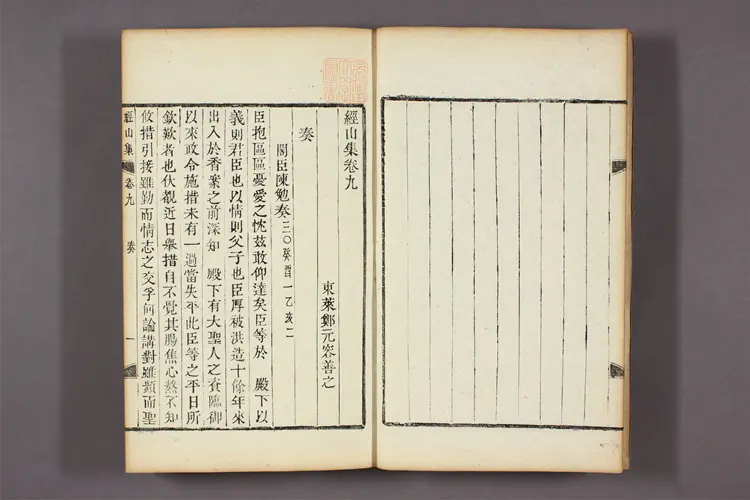 經山集卷九
東萊鄭元容善之
奏
閣臣陳勉奏三〇癸酉一乙亥二
臣抱區區憂愛之忱玆敢仰達矣臣等於 殿下以
義則君臣也以情則父子也臣厚被洪造十餘年來
出入於香案之前深知 殿下有大聖人之資臨御
以來政令施措未有一過當失平此臣等之平日所
欽歎者也伏覩近日舉措自不覺其腸焦心熬不知
攸措引接雖勤而情志之交孚何論講對雖頻而聖
經山集 卷九 奏 一